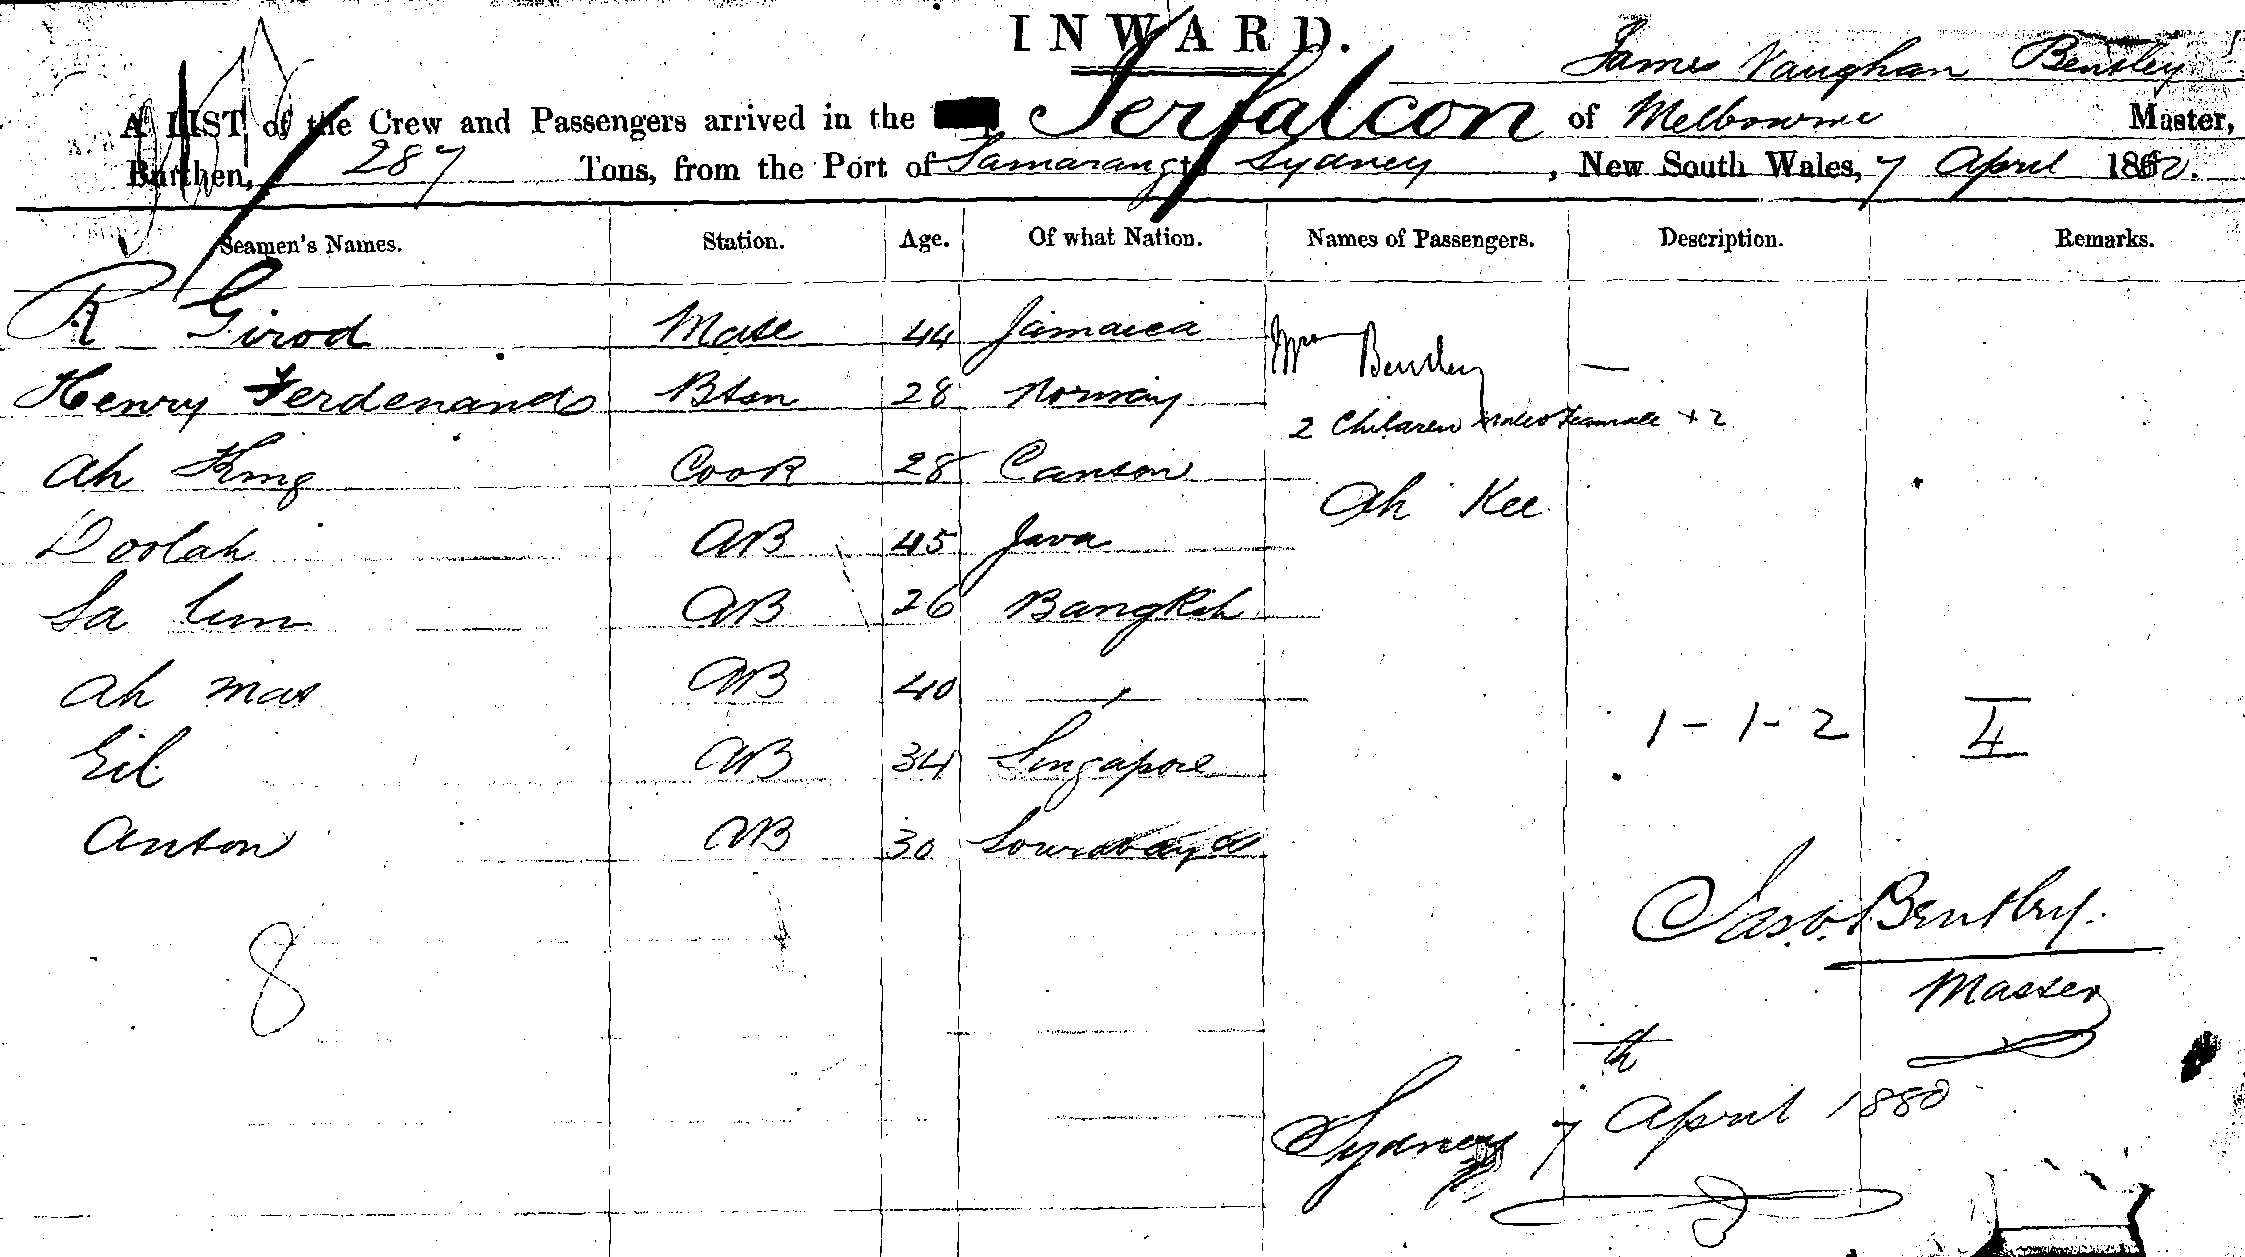 INWARD.
James Vaughan Bentley
A LIST of the Crew and Passengers arrived in the Jerfalcon of Melbourne Master,
Burthen, 287 Tons, from the Port of Samarang to Sydney, New South Wales, 7 April 1880.
Seamen's Names. Station. Age. Of what Nation. Names of Passengers. Description. Remarks.
R Girod Mate 44 Jamaica
Mrs Bentley —
Henry Ferdenand Btsn 28 Norway
2 Children + 2
Ah King Cook 28 Canton
Ah Kee
Doolah AB 45 Java
Sa lim AB 26 Bangkok
Ah mat AB 40 — " —
Eil AB 34 Singapore
1 - 1 - 2 4
Anton AB 30 Sourabaya
Jas. V. Bentley.
Master
8
Sydney 7th April 1880